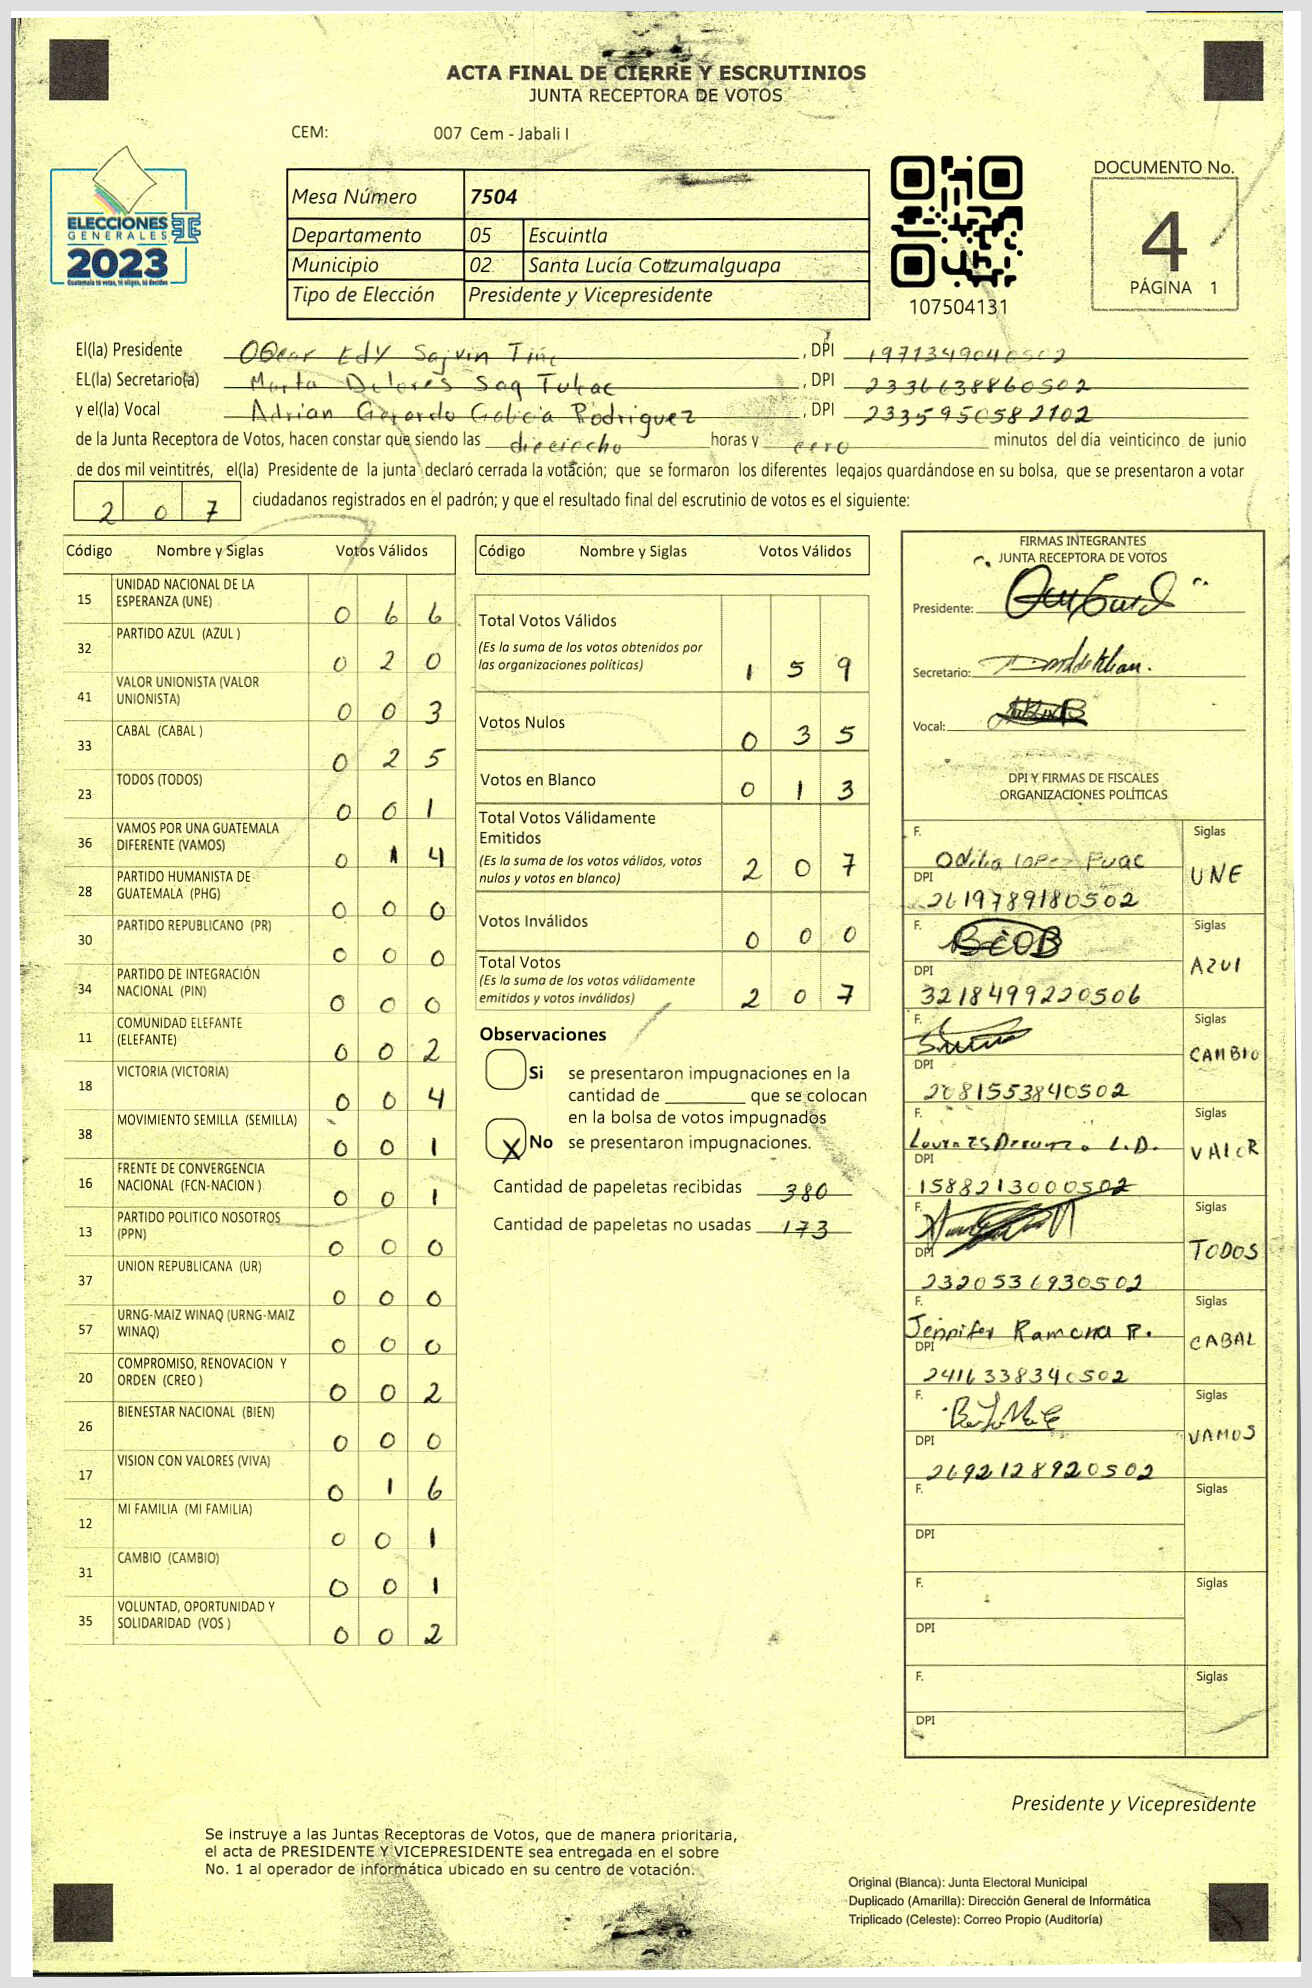 ACTA FINAL DE CIERRE Y ESCRUTINIOS
JUNTA RECEPTORA DE VOTOS
CEM: 007 Cem - Jabali I
ELECCIONES
GENERALES
2023
Guatemala tú votas, tú eliges, tú decides
Mesa Número 7504
Departamento 05 Escuintla
Municipio 02 Santa Lucía Cotzumalguapa
Tipo de Elección Presidente y Vicepresidente
107504131
DOCUMENTO No.
4
PÁGINA 1
El(la) Presidente Edy Sajvin , DPI 1971349040502
EL(la) Secretario(a) Marta Dolores Saq Tukac , DPI 2336638860502
y el(la) Vocal Adrian Gerardo Galicia Rodriguez , DPI 2335950582102
de la Junta Receptora de Votos, hacen constar que siendo las dieciocho horas y cero minutos del día veinticinco de junio
de dos mil veintitrés, el(la) Presidente de la junta declaró cerrada la votación; que se formaron los diferentes legajos quardándose en su bolsa, que se presentaron a votar
2 0 7 ciudadanos registrados en el padrón; y que el resultado final del escrutinio de votos es el siguiente:
Código Nombre y Siglas Votos Válidos
15 UNIDAD NACIONAL DE LA ESPERANZA (UNE) 0 6 6
32 PARTIDO AZUL (AZUL ) 0 2 0
41 VALOR UNIONISTA (VALOR UNIONISTA) 0 0 3
33 CABAL (CABAL ) 0 2 5
23 TODOS (TODOS) 0 0 1
36 VAMOS POR UNA GUATEMALA DIFERENTE (VAMOS) 0 1 4
28 PARTIDO HUMANISTA DE GUATEMALA (PHG) 0 0 0
30 PARTIDO REPUBLICANO (PR) 0 0 0
34 PARTIDO DE INTEGRACIÓN NACIONAL (PIN) 0 0 0
11 COMUNIDAD ELEFANTE (ELEFANTE) 0 0 2
18 VICTORIA (VICTORIA) 0 0 4
38 MOVIMIENTO SEMILLA (SEMILLA) 0 0 1
16 FRENTE DE CONVERGENCIA NACIONAL (FCN-NACION ) 0 0 1
13 PARTIDO POLITICO NOSOTROS (PPN) 0 0 0
37 UNION REPUBLICANA (UR) 0 0 0
57 URNG-MAIZ WINAQ (URNG-MAIZ WINAQ) 0 0 0
20 COMPROMISO, RENOVACION Y ORDEN (CREO ) 0 0 2
26 BIENESTAR NACIONAL (BIEN) 0 0 0
17 VISION CON VALORES (VIVA) 0 1 6
12 MI FAMILIA (MI FAMILIA) 0 0 1
31 CAMBIO (CAMBIO) 0 0 1
35 VOLUNTAD, OPORTUNIDAD Y SOLIDARIDAD (VOS ) 0 0 2
Código Nombre y Siglas Votos Válidos
Total Votos Válidos
(Es la suma de los votos obtenidos por
las organizaciones políticas) 1 5 9
Votos Nulos 0 3 5
Votos en Blanco 0 1 3
Total Votos Válidamente
Emitidos
(Es la suma de los votos válidos, votos
nulos y votos en blanco) 2 0 7
Votos Inválidos 0 0 0
Total Votos
(Es la suma de los votos válidamente
emitidos y votos inválidos) 2 0 7
Observaciones
Si se presentaron impugnaciones en la
cantidad de ________ que se colocan
en la bolsa de votos impugnados
X No se presentaron impugnaciones.
Cantidad de papeletas recibidas 380
Cantidad de papeletas no usadas 173
FIRMAS INTEGRANTES
JUNTA RECEPTORA DE VOTOS
Presidente:
Secretario:
Vocal:
DPI Y FIRMAS DE FISCALES
ORGANIZACIONES POLÍTICAS
F. Odilia Lopez Puac Siglas
DPI 2619789180502 UNE
F. Siglas
DPI 3218499220506 AZUL
F. Siglas
DPI 2081553840502 CAMBIO
F. L.D. Siglas
DPI 1588213000502 VALOR
F. Siglas
DPI 2320536930502 TODOS
F. Jennifer Ramona R. Siglas
DPI 2416338340502 CABAL
F. Siglas
DPI 2692128920502 VAMOS
F. Siglas
DPI
F. Siglas
DPI
F. Siglas
DPI
Presidente y Vicepresidente
Se instruye a las Juntas Receptoras de Votos, que de manera prioritaria,
el acta de PRESIDENTE Y VICEPRESIDENTE sea entregada en el sobre
No. 1 al operador de informática ubicado en su centro de votación.
Original (Blanca): Junta Electoral Municipal
Duplicado (Amarilla): Dirección General de Informática
Triplicado (Celeste): Correo Propio (Auditoría)